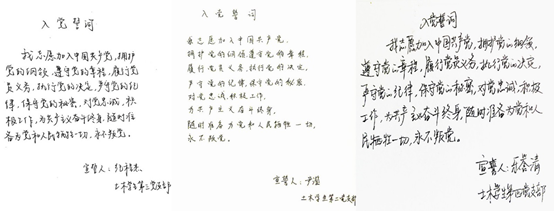 入党誓词
我志愿加入中国共产党，拥护
党的纲领，遵守党的章程，履行党
员义务，执行党的决定，严守党的纪
律，保守党的秘密，对党忠诚，积
极工作，为共产主义奋斗终身，随时准
备为党和人民牺牲一切，永不叛党。
宣誓人：
土木学生第三党支部
入党誓词
我志愿加入中国共产党，
拥护党的纲领，遵守党的章程，
履行党员义务，执行党的决定，
严守党的纪律，保守党的秘密，
对党忠诚，积极工作，
为共产主义奋斗终身，
随时准备为党和人民牺牲一切，
永不叛党。
宣誓人：尹
土木学生第二党支部
入党誓词
我志愿加入中国共产党，拥护党的纲领，
遵守党的章程，履行党员义务，执行党的决定，
严守党的纪律，保守党的秘密，对党忠诚，积极
工作，为共产主义奋斗终身，随时准备为党和人
民牺牲一切，永不叛党。
宣誓人：清
土木学生第四党支部